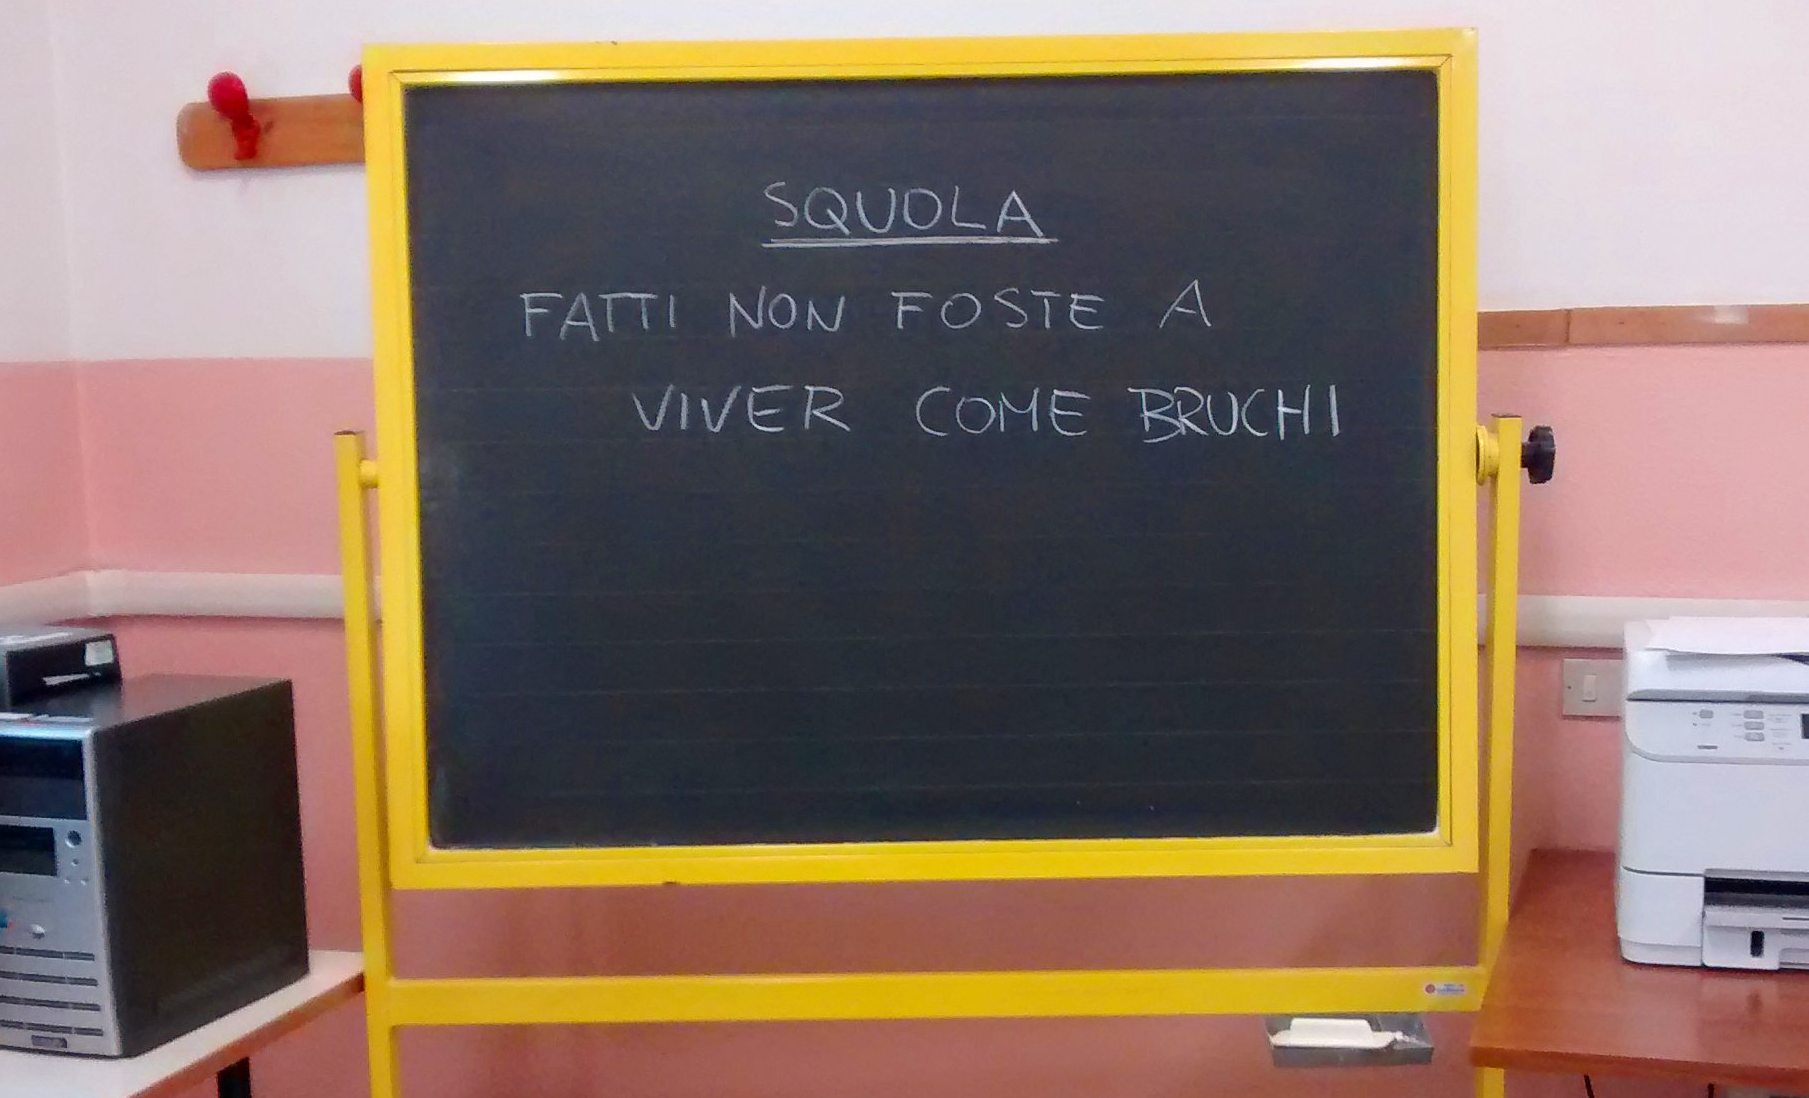 SQUOLA
FATTI NON FOSTE A
VIVER COME BRUCHI